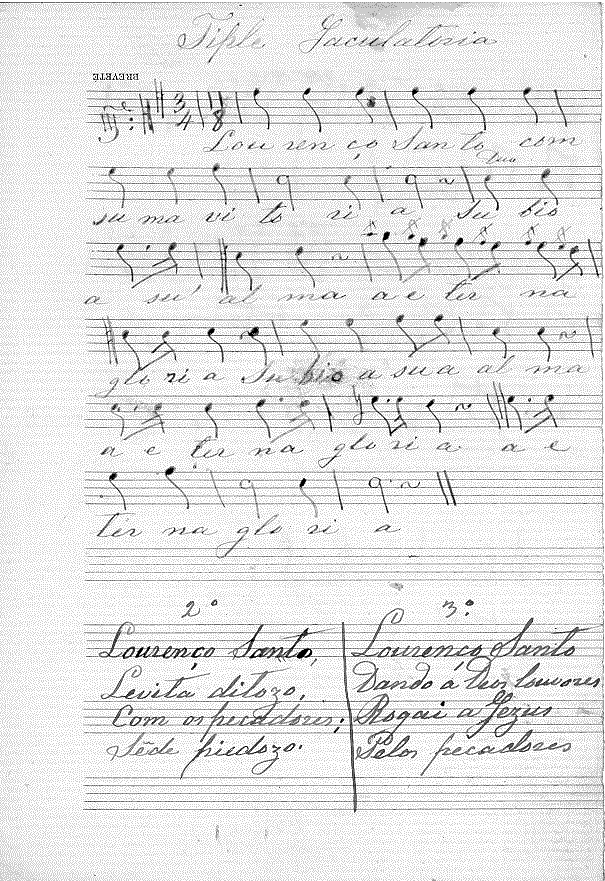 Tiple Jaculatoria
BREVETE
3/4 11/8
Lou ren ço San to com
Duo
su ma vi to ri a Su bio
a su' al ma a e ter na
glo ri a Su bio a sua al ma
a e ter na glo ri a a e
ter na glo ri a
2º
Lourenço Santo,
Levita ditozo,
Com os pecadores;
Sêde piedozo.
3º
Lourenço Santo
Dando á Deos louvores
Rogai a Jezus
Pelos pecadores